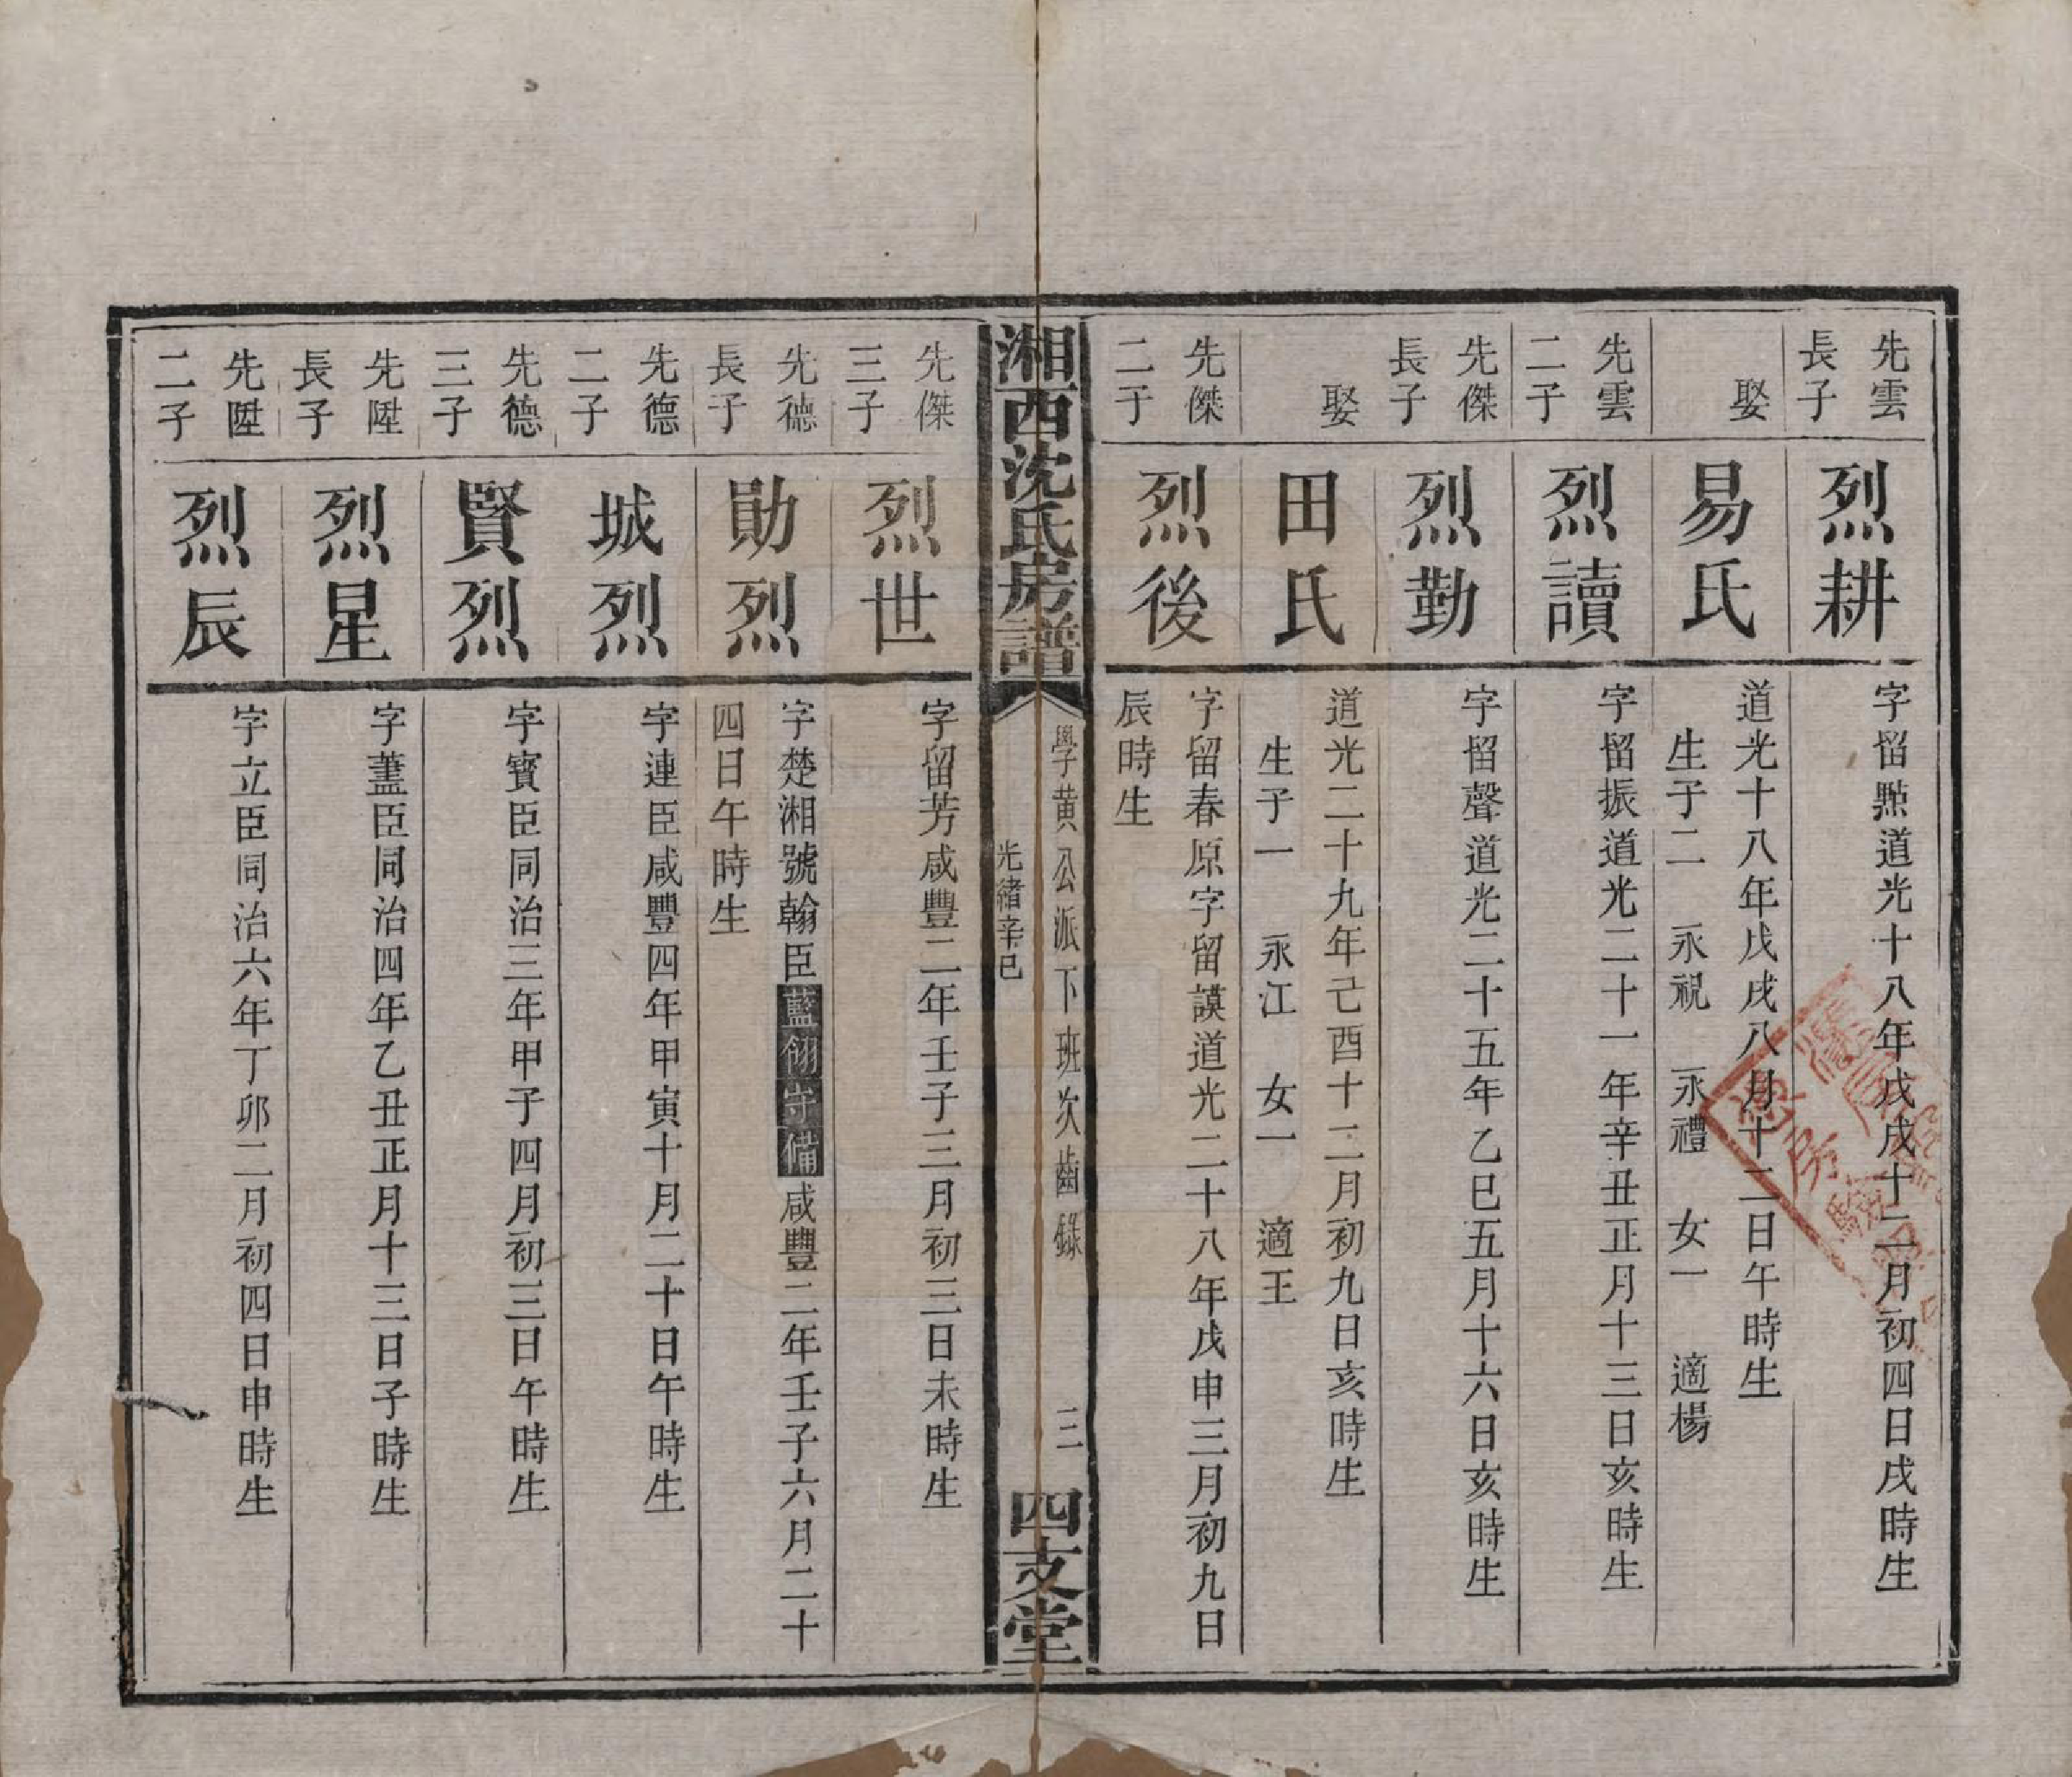 先雲
長子
烈耕
字畱㸃道光十八年戊戌十二月初四日戌時生
娶
易氏
道光十八年戊戌八月十二日午時生
生子二　永祝　永禮　女一　適楊
先雲
二子
烈讀
字畱振道光二十一年辛丑正月十三日亥時生
先傑
長子
烈勤
字畱聲道光二十五年乙巳五月十六日亥時生
娶
田氏
道光二十九年己酉十二月初九日亥時生
生子一　永江　女一　適王
先傑
二子
烈後
字留春原字留謨道光二十八年戊申三月初九日
辰時生
湘西沈氏房譜
學黄公派下班次齒錄
三
光緒辛巳
四支堂
先傑
三子
烈世
字留芳咸豐二年壬子三月初三日未時生
先德
長子
勛烈
字楚湘號翰臣藍翎守備咸豐二年壬子六月二十
四日午時生
先德
二子
城烈
字連臣咸豐四年甲寅十月二十日午時生
先德
三子
賢烈
字寳臣同治三年甲子四月初三日午時生
先陞
長子
烈星
字藎臣同治四年乙丑正月十三日子時生
先陞
二子
烈辰
字立臣同治六年丁卯二月初四日申時生